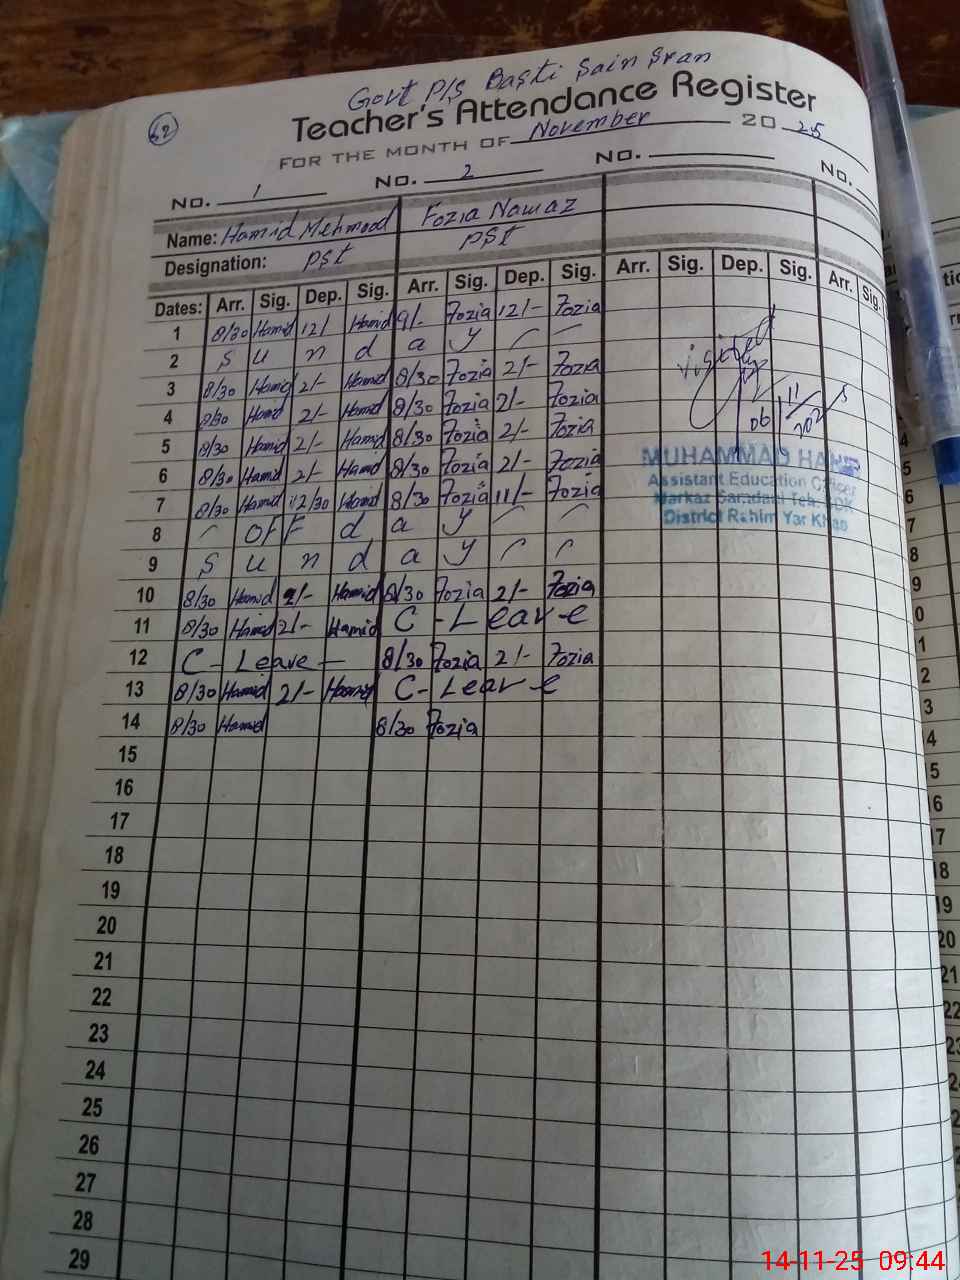 Govt P/S Basti Sain Sran
62
Teacher's Attendance Register
FOR THE MONTH OF November 2025
No. 1 No. 2 No. No.
Name: Hamid Mehmood Fozia Nawaz
Designation: PST PST
Dates: Arr. Sig. Dep. Sig. Arr. Sig. Dep. Sig. Arr. Sig. Dep. Sig. Arr. Sig.
1 8/30 Hamid 12/ Hamid 9/- Fozia 12/- Fozia
2 S u n d a y
3 8/30 Hamid 2/- Hamid 8/30 Fozia 2/- Fozia
4 8/30 Hamid 2/- Hamid 8/30 Fozia 2/- Fozia
5 8/30 Hamid 2/- Hamid 8/30 Fozia 2/- Fozia
6 8/30 Hamid 2/- Hamid 8/30 Fozia 2/- Fozia
7 8/30 Hamid 12/30 Hamid 8/30 Fozia 11/- Fozia
8 OFF d a y
9 S u n d a y
10 8/30 Hamid 2/- Hamid 8/30 Fozia 2/- Fozia
11 8/30 Hamid 2/- Hamid C-Leave
12 C-Leave 8/30 Fozia 2/- Fozia
13 8/30 Hamid 2/- Hamid C-Leave
14 8/30 Hamid 8/30 Fozia
15
16
17
18
19
20
21
22
23
24
25
26
27
28
29
visited
06/11/2025
MUHAMMAD
Assistant Education Officer
Markaz Teh.
District Rahim Yar Khan
14-11-25 09:44